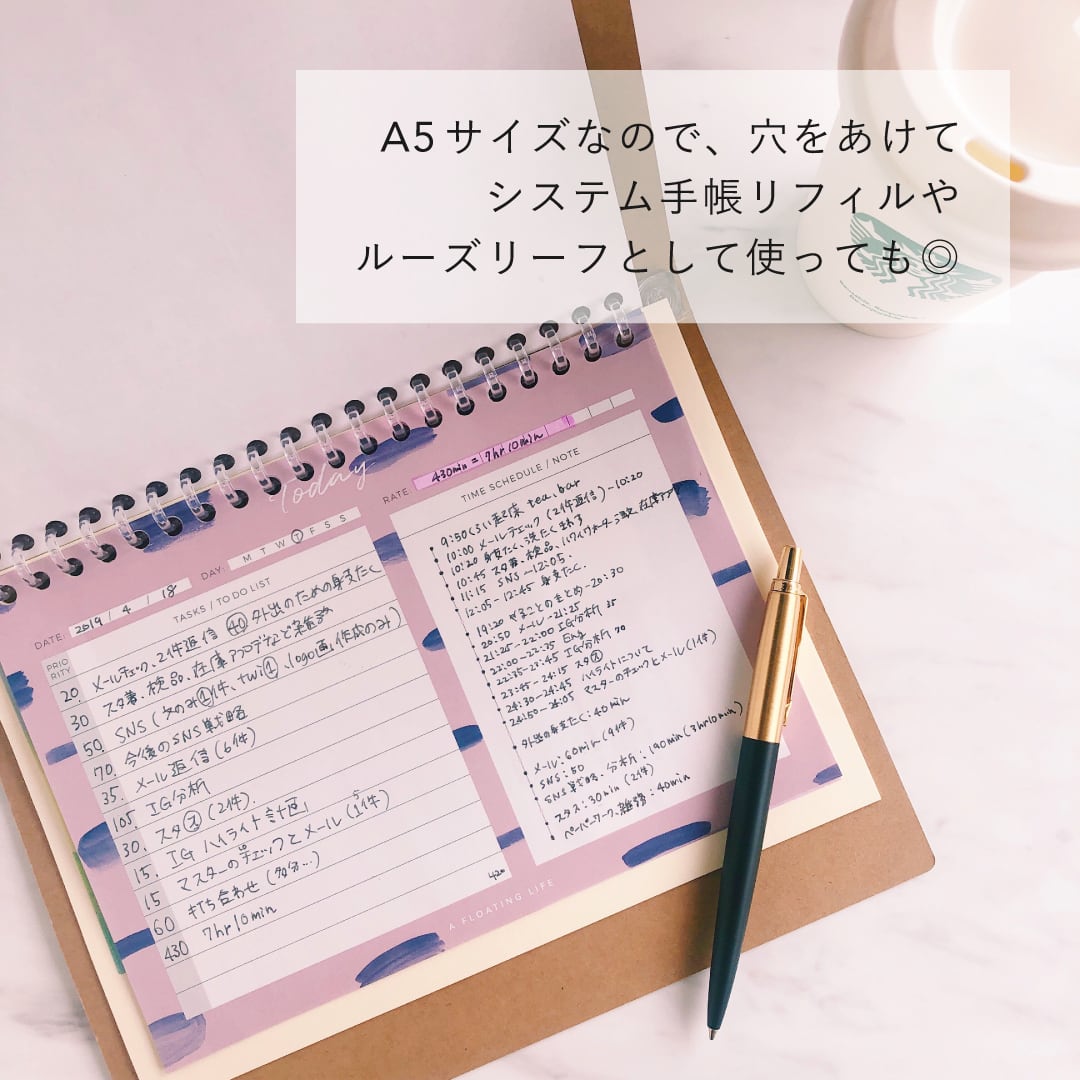 A5サイズなので、穴をあけて
システム手帳リフィルや
ルーズリーフとして使っても◎
Today
DATE: 2019 / 4 / 18
DAY: M T W T F S S
RATE: 430min = 7hr 10min
TASKS / TO DO LIST
PRIO
RITY
20. メールチェック、2件返信 40 外出のための身支たく
30 スタ兼、検品、在庫
50. SNS (タのみ1件、twi1、logo画作成のみ)
70. 今後のSNS戦略
35. メール返信 (6件)
105. IG分析
30. スタス (2件).
15. IG ハイライト計画
15 マスターのチェックとメール (1件)
60 打ち合わせ (多分…)
430 7hr 10min
420
TIME SCHEDULE / NOTE
9:50くらい起床 tea, bar
10:00 メールチェック (2件返信) -10:20
10:20 身支たく、洗たくまわす
10:45 スタ兼、検品、
11:15 SNS -12:05.
12:05-12:45 身支たく.
19:20 やることのまとめ -20:30
20:50 メール -21:25
21:25-22:00 IG分析 35
22:00-22:35 Eng
22:35-23:45 IG分析 70
23:45-24:15 スタス
24:30-24:45 ハイライトについて
24:50-25:05 マスターのチェックとメール (1件)
外出の身支たく: 40min
メール: 60min (9件)
SNS: 50
SNS戦略・分析: 190min (3hr10min)
スタス: 30min (2件)
ペーパーワーク、雑務: 40min
A FLOATING LIFE